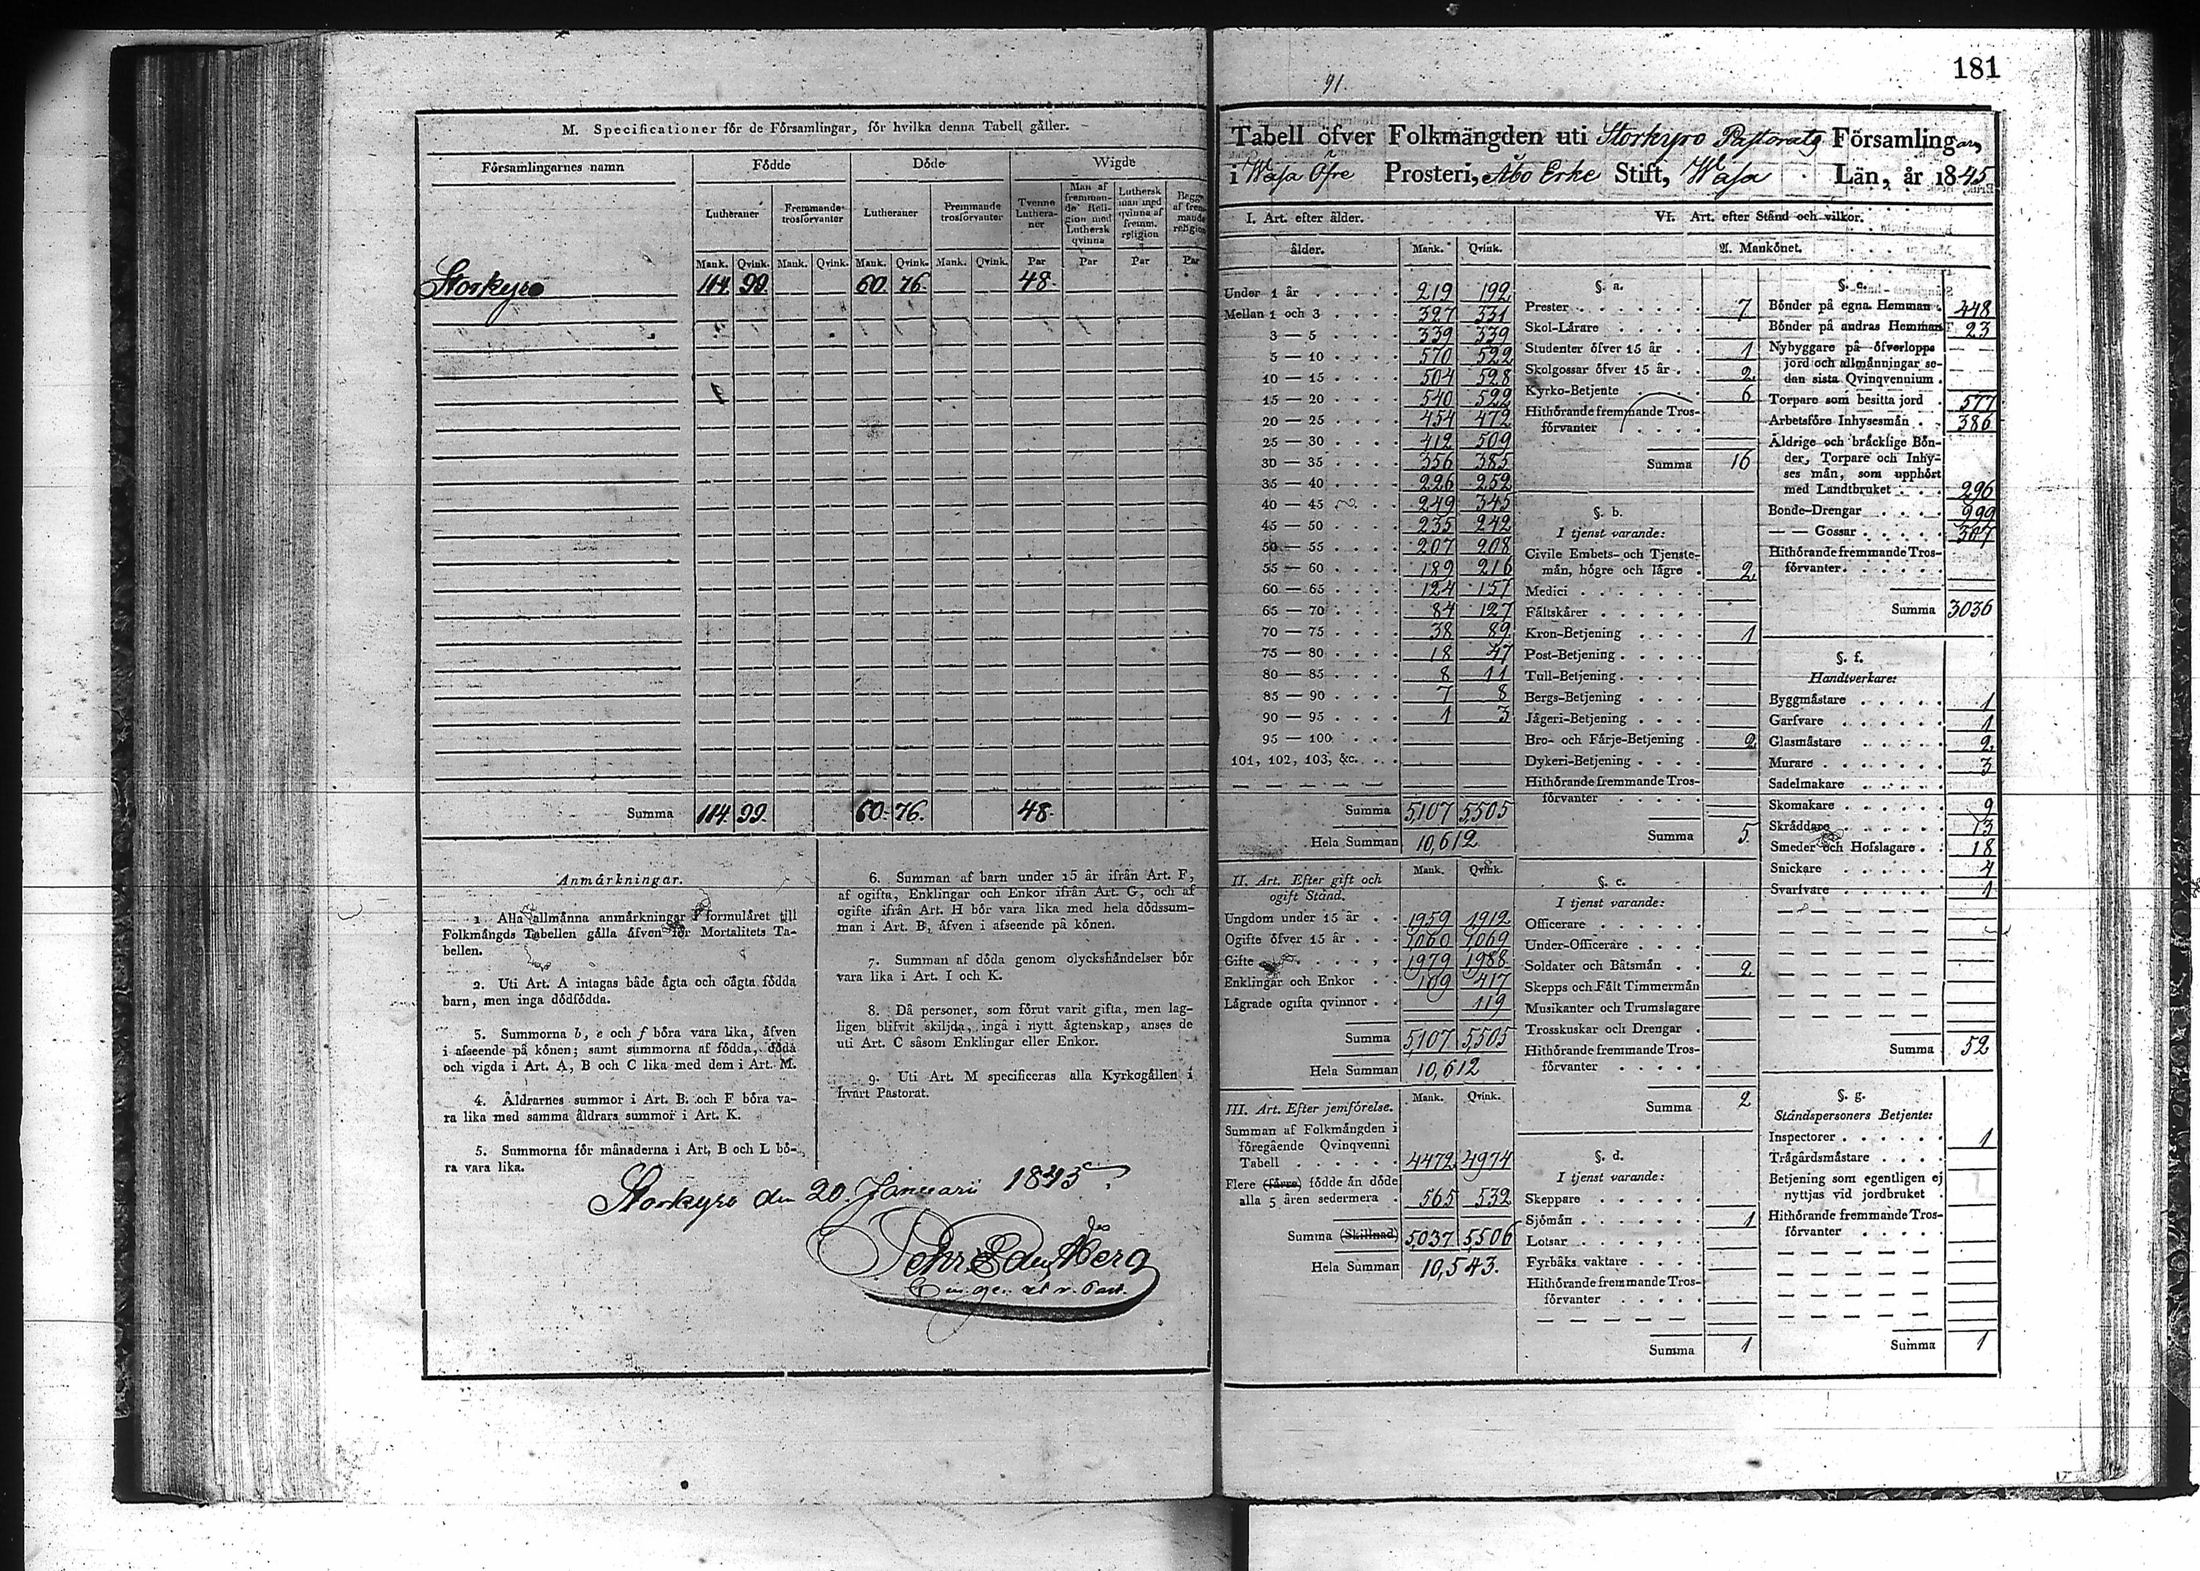 M. Specificationer för de Församlingar, för hvilka denna Tabell gäller.
Församlingarnes namn
Födde
Döde
Wigde
Lutheraner
Fremmande trosförvanter
Lutheraner
Fremmande trosförvanter
Tvenne Lutheraner
Man af fremmande Religion med Luthersk qvinna
Luthersk man med qvinna af fremm. religion
Begge af fremmande religion
Mank. Qvink. Mank. Qvink. Mank. Qvink. Mank. Qvink. Par Par Par Par
Storkyro 114. 99. 60. 76. 48.
Summa 114. 99. 60. 76. 48.
Anmärkningar.
1. Alla allmänna anmärkningar i formuläret till
Folkmängds Tabellen gälla äfven för Mortalitets Ta-
bellen.
2. Uti Art. A intagas både ägta och oägta födda
barn, men inga dödfödda.
3. Summorna b, e och f böra vara lika, äfven
i afseende på könen; samt summorna af födda, döda
och vigda i Art. A, B och C lika med dem i Art. M.
4. Åldrarnes summor i Art. B. och F böra va-
ra lika med samma åldrars summor i Art. K.
5. Summorna för månaderna i Art, B och L bö-
ra vara lika.
6. Summan af barn under 15 år ifrån Art. F,
af ogifta, Enklingar och Enkor ifrån Art. G, och af
ogifte ifrån Art. H bör vara lika med hela dödssum-
man i Art. B, äfven i afseende på könen.
7. Summan af döda genom olyckshändelser bör
vara lika i Art. I och K.
8. Då personer, som förut varit gifta, men lag-
ligen blifvit skiljda, ingå i nytt ägtenskap, anses de
uti Art. C såsom Enklingar eller Enkor.
9. Uti Art. M specificeras alla Kyrkogällen i
hvart Pastorat.
Storkyro den 20. Januarii 1845
181
91.
Tabell öfver Folkmängden uti Storkyro Pastorats Församlingar,
i Wasa Öfre Prosteri, Åbo Erke Stift, Wasa Län, år 1845
I. Art. efter ålder.
ålder. Mank. Qvink.
Under 1 år 219 192
Mellan 1 och 3 327 331
3 — 5 339 339
5 — 10 570 522
10 — 15 504 528
15 — 20 540 522
20 — 25 454 472
25 — 30 412 509
30 — 35 356 385
35 — 40 226 252
40 — 45 249 345
45 — 50 235 242
50 — 55 207 208
55 — 60 189 216
60 — 65 124 157
65 — 70 84 127
70 — 75 38 89
75 — 80 18 47
80 — 85 8 11
85 — 90 7 8
90 — 95 1 3
95 — 100
101, 102, 103, &c.
Summa 5,107 5,505
Hela Summan 10,612
II. Art. Efter gift och ogift Stånd. Mank. Qvink.
Ungdom under 15 år 1959 1912
Ogifte öfver 15 år 1060 1069
Gifte 1979 1988
Enklingar och Enkor 109 417
Lägrade ogifta qvinnor 119
Summa 5,107 5,505
Hela Summan 10,612
III. Art. Efter jemförelse. Mank. Qvink.
Summan af Folkmängden i
föregående Qvinqvenni
Tabell 4472 4974
Flere (färre) födde än döde
alla 5 åren sedermera 565 532
Summa (Skillnad) 5,037 5,506
Hela Summan 10,543.
VI. Art. efter Stånd och vilkor.
A. Mankönet.
§. a.
Prester 7
Skol-Lärare
Studenter öfver 15 år 1
Skolgossar öfver 15 år 2
Kyrko-Betjente 6
Hithörande fremmande Tros-
förvanter
Summa 16
§. b.
I tjenst varande:
Civile Embets- och Tjenste-
män, högre och lägre 2
Medici
Fältskärer
Kron-Betjening 1
Post-Betjening
Tull-Betjening
Bergs-Betjening
Jägeri-Betjening
Bro- och Färje-Betjening 2
Dykeri-Betjening
Hithörande fremmande Tros-
förvanter
Summa 5
§. c.
I tjenst varande:
Officerare
Under-Officerare
Soldater och Båtsmän 2
Skepps och Fält Timmermän
Musikanter och Trumslagare
Trosskuskar och Drengar
Hithörande fremmande Tros-
förvanter
Summa 2
§. d.
I tjenst varande:
Skeppare
Sjömän 1
Lotsar
Fyrbåks vaktare
Hithörande fremmande Tros-
förvanter
Summa 1
§. e.
Bönder på egna Hemman 448
Bönder på andras Hemman 23
Nybyggare på öfverlopps
jord och allmänningar se-
dan sista Qvinqvennium
Torpare som besitta jord 577
Arbetsföre Inhysesmän 386
Äldrige och bräcklige Bön-
der, Torpare och Inhy-
ses män, som upphört
med Landtbruket 296
Bonde-Drengar 999
— — Gossar 307
Hithörande fremmande Tros-
förvanter
Summa 3036
§. f.
Handtverkare:
Byggmästare 1
Garfvare 1
Glasmästare 2
Murare 3
Sadelmakare
Skomakare 9
Skräddare 13
Smeder och Hofslagare 18
Snickare 4
Svarfvare 1
Summa 52
§. g.
Ståndspersoners Betjente:
Inspectorer 1
Trägårdsmästare
Betjening som egentligen ej
nyttjas vid jordbruket
Hithörande fremmande Tros-
förvanter
Summa 1